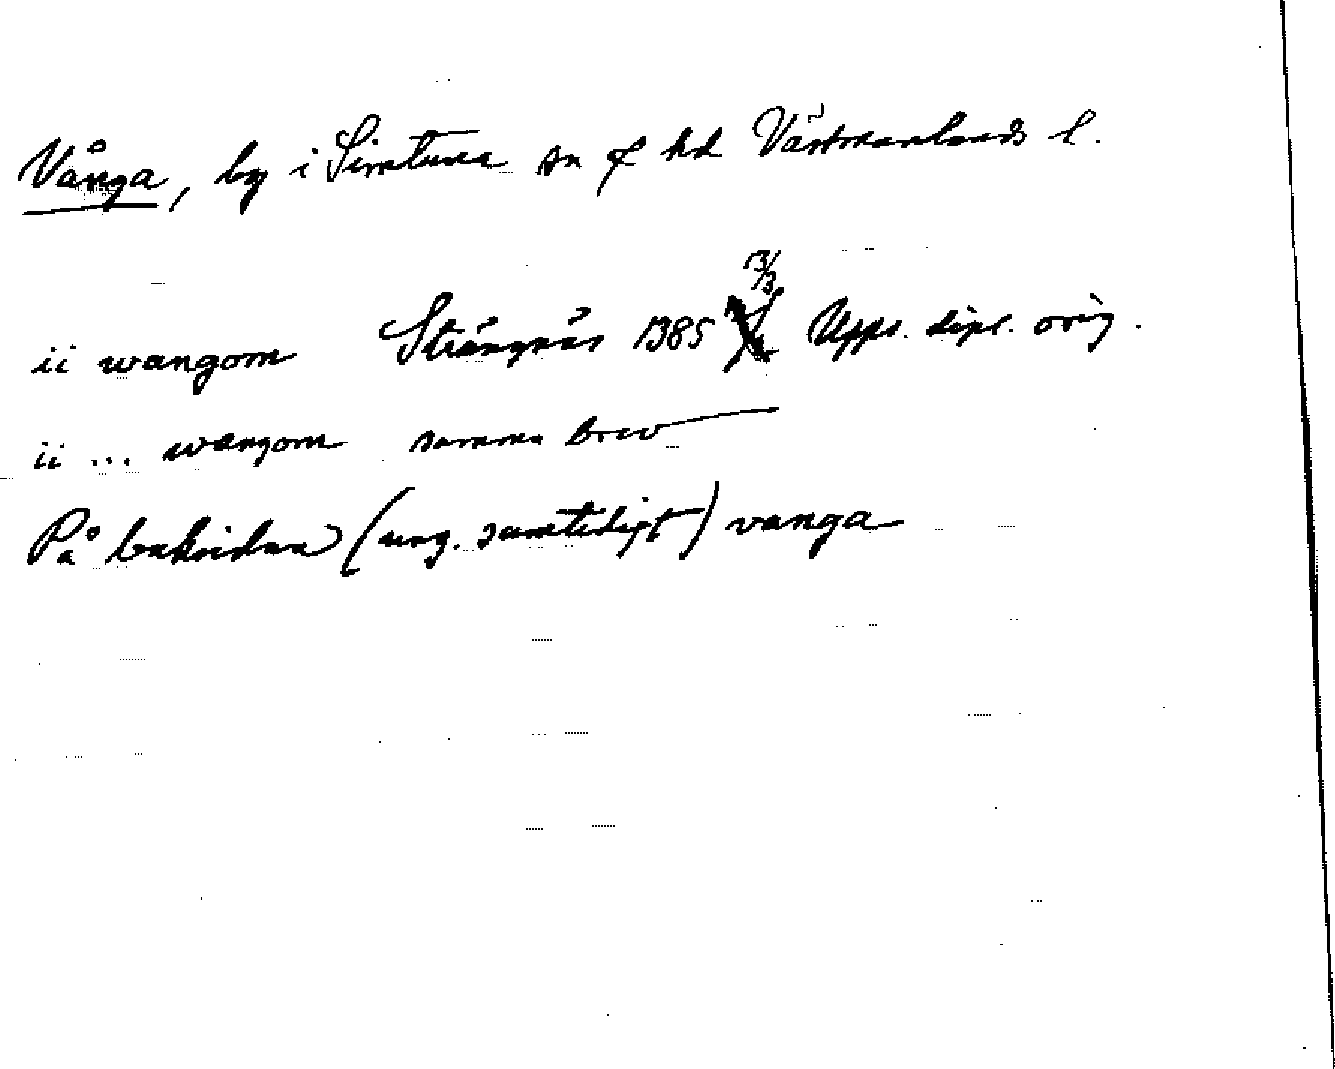 Vånga, by i Simtuna sn o hd Västmanlands l.
ii wangom Strängnäs 1385 13/3 Upps. dipl. orig.
ii ... wangom samma brev
På baksidan (ung. samtidigt) vanga